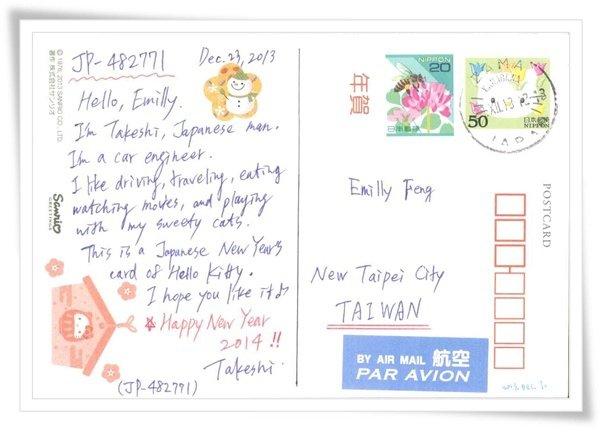 JP-482771
Dec. 23, 2013
Hello, Emilly.
I'm Takeshi, Japanese man.
I'm a car engineer.
I like driving, traveling, eating
watching movies, and playing
with my sweety cats.
This is a Japanese New Year's
card of Hello Kitty.
I hope you like it♪
☆Happy New Year
2014 !!
Takeshi.
(JP-482771)
© 1976, 2013 SANRIO CO., LTD.
著作 株式会社サンリオ
Sanrio
GREETINGS
年賀
20
NIPPON
日本郵便
50
日本郵便
NIPPON
Emilly Feng
New Taipei City
TAIWAN
POSTCARD
BY AIR MAIL 航空
PAR AVION